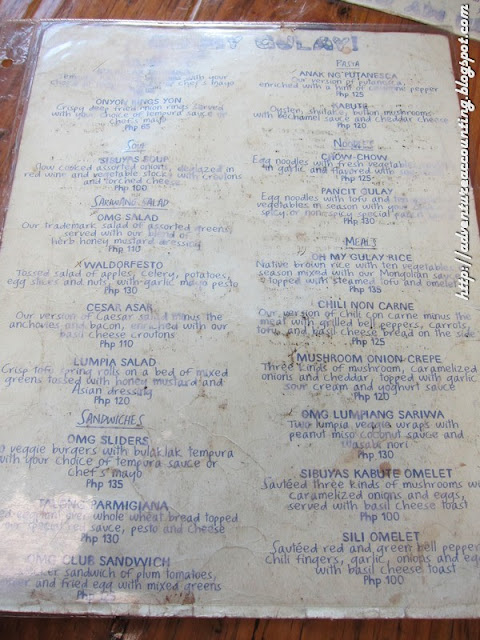 GULAY!
with your
chef's mayo
ONYON RINGS YON
Crispy deep fried onion rings served
with your choice of tempura sauce or
chef's mayo
Php 65
Soup
SIBUYAS SOUP
Slow cooked assorted onions, deglazed in
red wine and vegetable stocks with croutons
and torched cheese
Php 100
SARIWANG SALAD
OMG SALAD
Our trademark salad of assorted greens,
served with our blend of
herb honey mustard dressing
Php 110
WALDORFESTO
Tossed salad of apples, celery, potatoes,
egg slices and nuts, with garlic mayo pesto
Php 130
CESAR ASAR
Our version of Caesar salad minus the
anchovies and bacon, enriched with our
basil cheese croutons
Php 110
LUMPIA SALAD
Crisp tofu spring rolls on a bed of mixed
greens tossed with honey mustard and
Asian dressing
Php 120
SANDWICHES
OMG SLIDERS
veggie burgers with bulaklak tempura
with your choice of tempura sauce or
chef's mayo
Php 135
TALONG PARMIGIANA
whole wheat bread topped
sauce, pesto and cheese
Php 130
OMG CLUB SANDWICH
sandwich of plum tomatoes,
and fried egg with mixed greens
PASTA
ANAK NG PUTANESCA
Our version of putanesca,
enriched with a hint of cayenne pepper
Php 125
KABUTE
Oyster, shiitake, button mushrooms
with bechamel sauce and cheddar cheese
Php 120
NOODLES
CHOW-CHOW
Egg noodles with fresh vegetables
in garlic and flavored with
Php 125
PANCIT GULAY
Egg noodles with tofu and ten
vegetables in season with your
spicy or non-spicy special
Php 130
MEALS
OH MY GULAY RICE
Native brown rice with ten vegetables
season mixed with our Mongolian sauce
topped with steamed tofu and omelet
Php 135
CHILI NON CARNE
Our version of chili con carne minus the
meat with grilled bell peppers, carrots,
tofu, and basil cheese bread on the side
Php 125
MUSHROOM ONION CREPE
Three kinds of mushroom, caramelized
onions and cheddar, topped with garlic
sour cream and yoghurt sauce
Php 120
OMG LUMPIANG SARIWA
Two lumpia veggie wraps with
peanut miso coconut sauce and
wasabi nori
Php 130
SIBUYAS KABUTE OMELET
Sautéed three kinds of mushrooms wi
caramelized onions and eggs,
served with basil cheese toast
Php 100
SILI OMELET
Sautéed red and green bell pepper
chili fingers, garlic, onions and eg
with basil cheese toast
Php 100
http://adventurousaccounting.blogspot.com